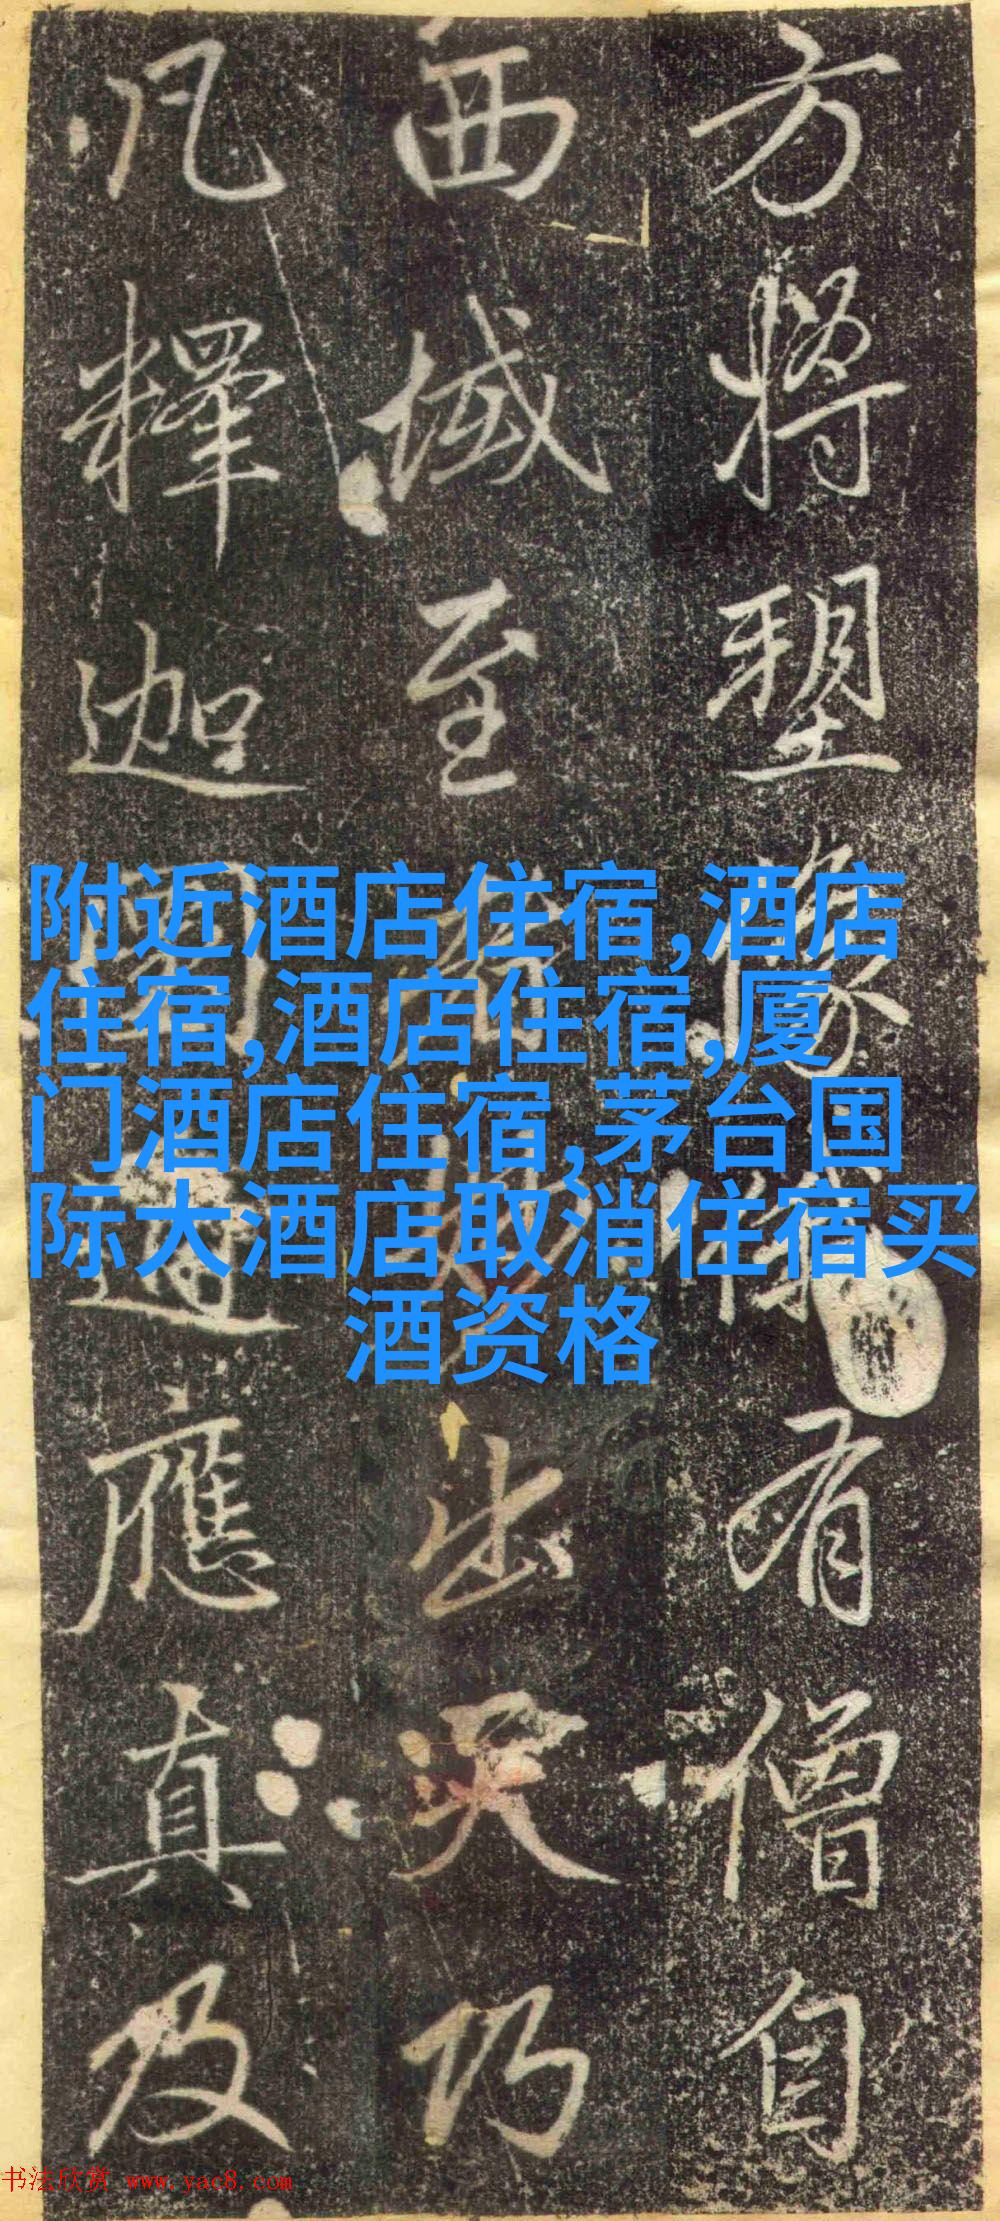 方將塑像有僧自
西域至出天巧
凡釋迦應真及
附近酒店住宿,酒店
住宿,酒店住宿,厦
门酒店住宿,茅台国
际大酒店取消住宿买
酒资格
书法欣赏 www.yac8.com